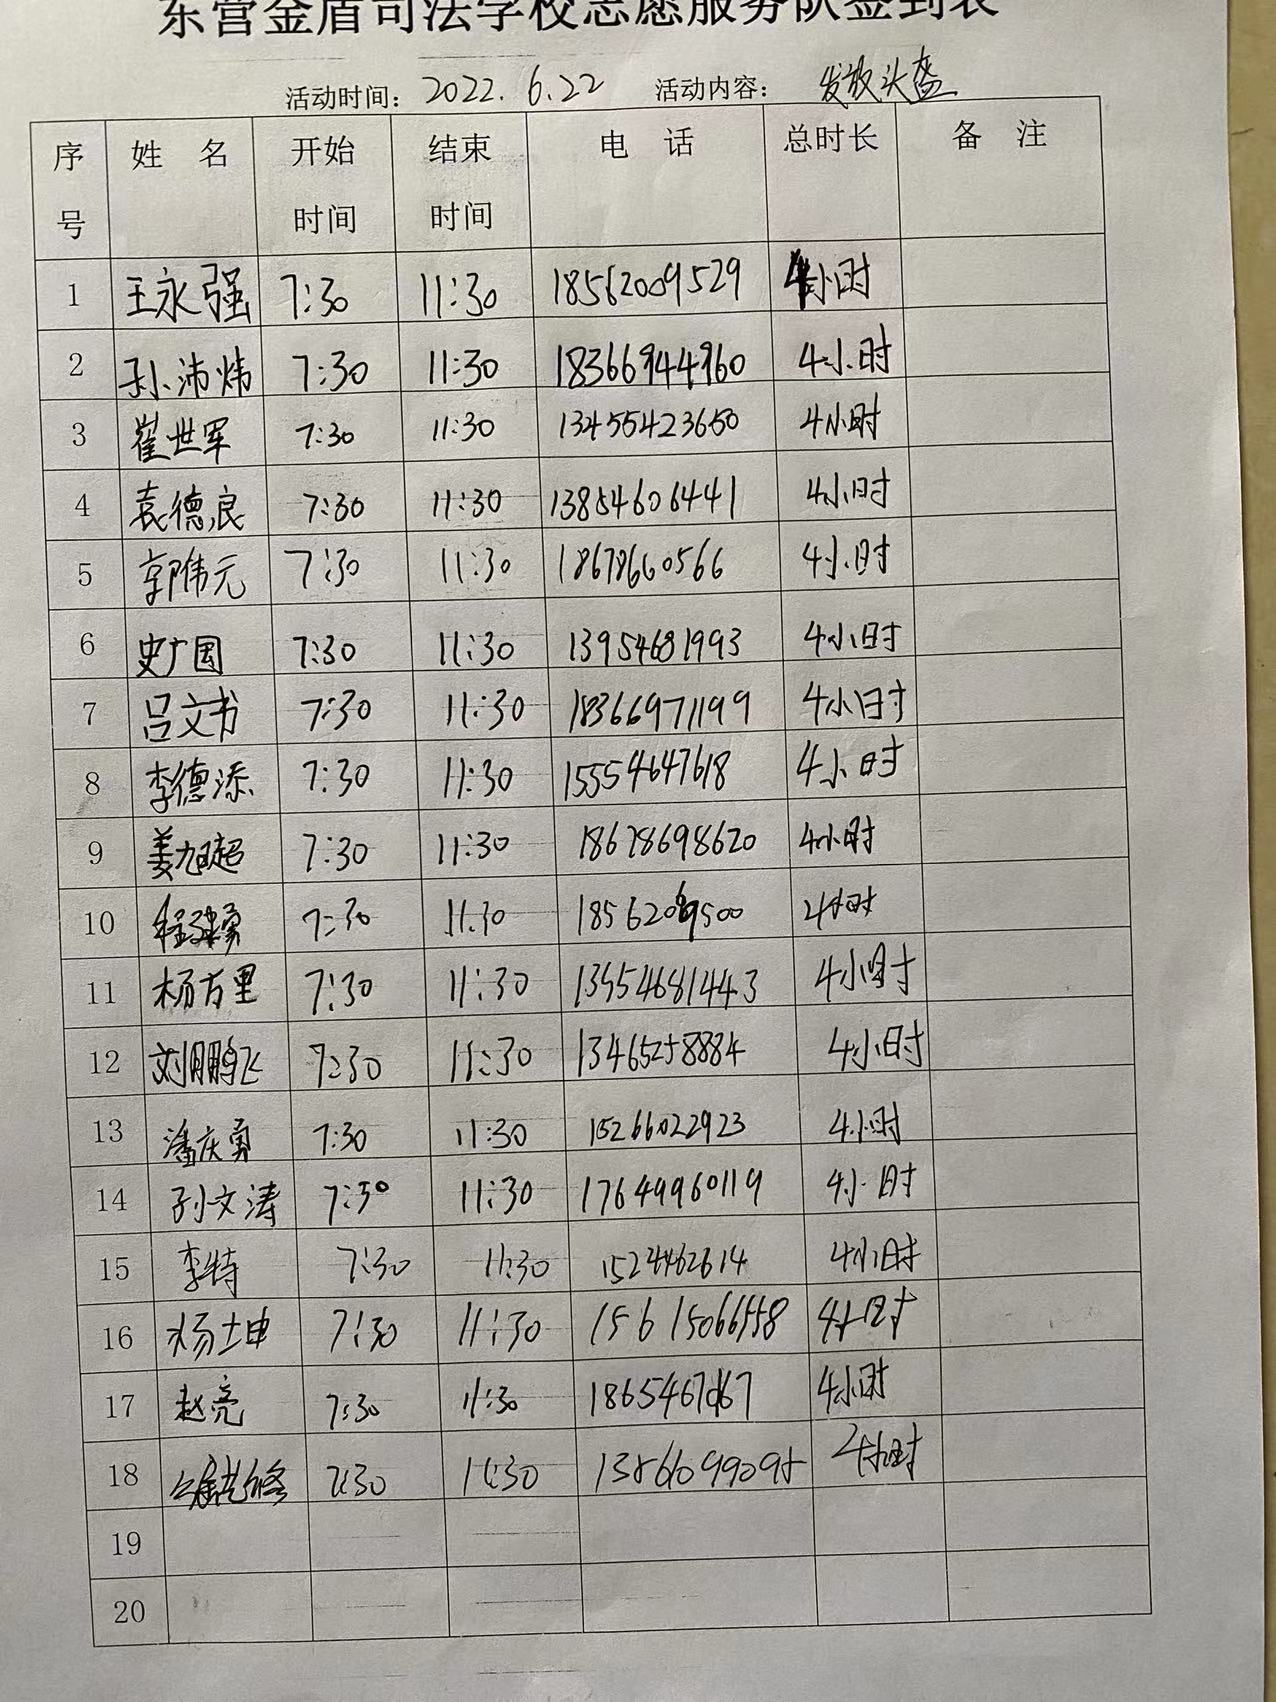 东营金盾司法学校志愿服务队签到表
活动时间：2022.6.22 活动内容：发放头盔
序号 姓名 开始时间 结束时间 电话 总时长 备注
1 王永强 7:30 11:30 18562009529 4小时
2 孙沛炜 7:30 11:30 18366944960 4小时
3 崔世军 7:30 11:30 13455423650 4小时
4 袁德良 7:30 11:30 13854606441 4小时
5 郭伟元 7:30 11:30 18678660566 4小时
6 史广国 7:30 11:30 13954681993 4小时
7 吕文书 7:30 11:30 18366971199 4小时
8 李德添 7:30 11:30 15554647618 4小时
9 姜旭超 7:30 11:30 18678698620 4小时
10 7:30 11:30 4小时
11 杨方里 7:30 11:30 13954681443 4小时
12 刘鹏飞 7:30 11:30 13465258884 4小时
13 潘庆勇 7:30 11:30 15266022923 4小时
14 孙文涛 7:30 11:30 17649960119 4小时
15 李特 7:30 11:30 1524462614 4小时
16 杨士申 7:30 11:30 4小时
17 赵亮 7:30 11:30 4小时
18 7:30 11:30 4小时
19
20